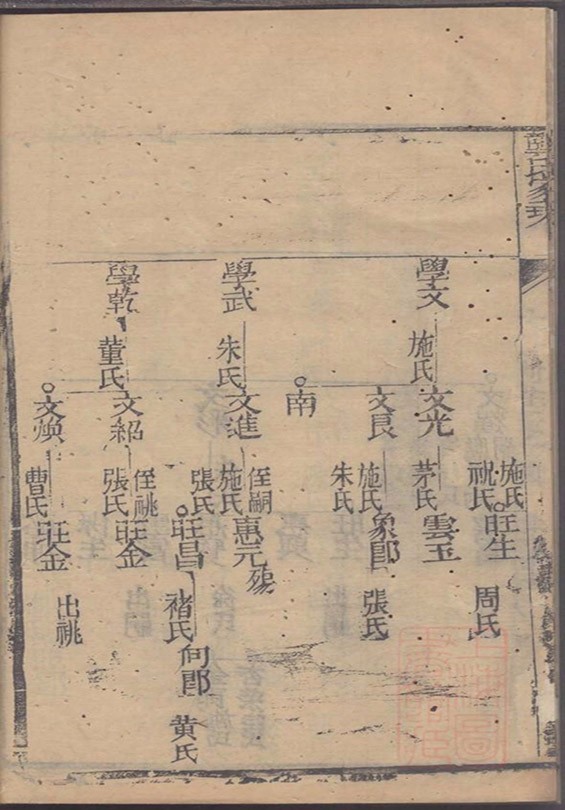 學文
施氏
文光
施氏
祝氏
旺生
周氏
茅氏
雲玉
文良
施氏
朱氏
象郎
張氏
南
學武
朱氏
文進
侄嗣
施氏
張氏
惠元
殤
旺昌
褚氏
向郎
黄氏
學乾
董氏
文紹
侄祧
張氏
旺金
文煥
曹氏
旺金
出祧